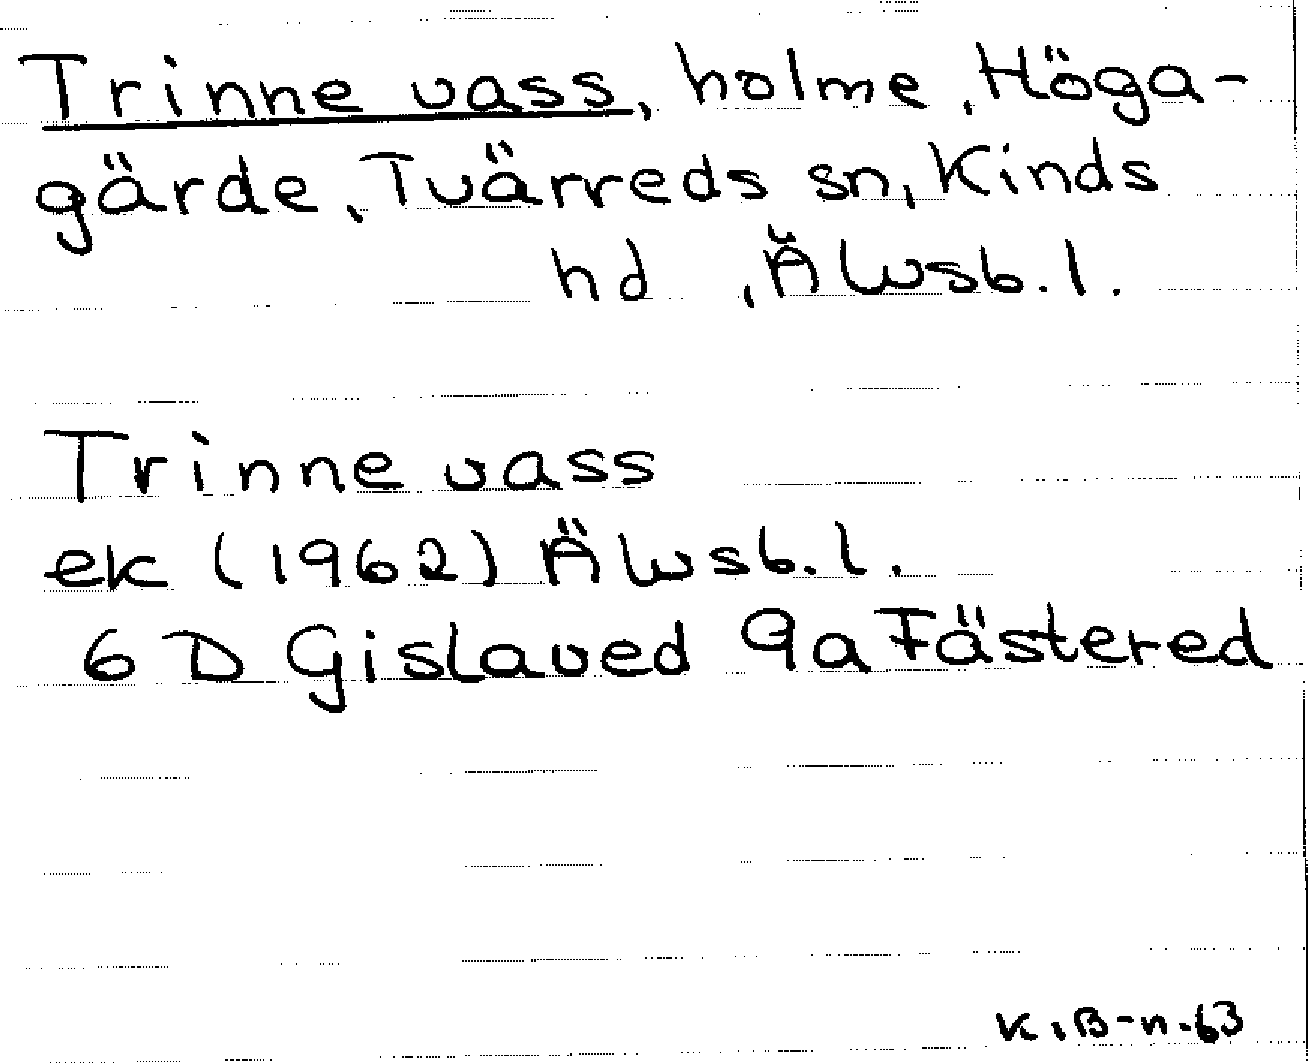 Trinne vass, holme, Höga-
gärde, Tvärreds sn, Kinds
hd, Älvsb. l.
Trinne vass
ek (1962) Älvsb. l.
6 D Gislaved 9a Fästered
K.B-n.63